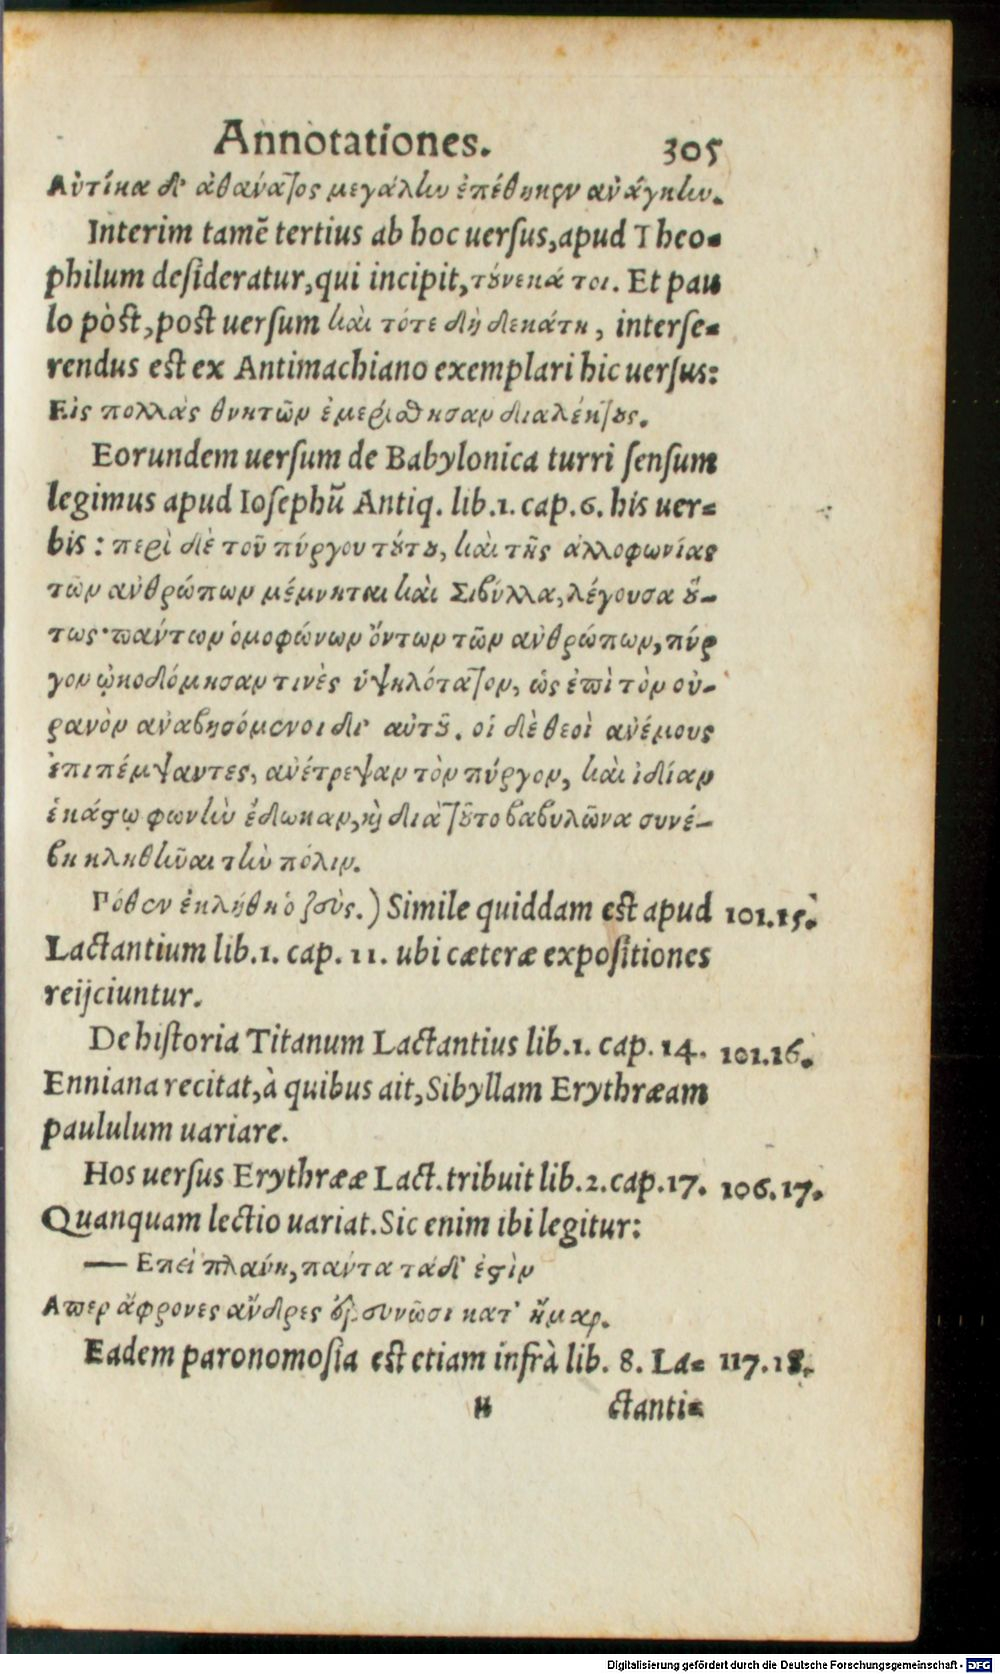 Annotationes. 305
Αὐτίκα δ' ἀθάνατος μεγάλην ἐπέθηκεν ἀνάγκην.
Interim tamē tertius ab hoc uersus, apud Theo=
philum desideratur, qui incipit, τούνεκά τοι. Et pau
lo pòst, post uersum καὶ τότε δὴ δεκάτη, interse=
rendus est ex Antimachiano exemplari hic uersus:
Εἰς πολλὰς θνητῶν ἐμερίσθησαν διαλέκτους.
Eorundem uersum de Babylonica turri sensum
legimus apud Iosephū Antiq. lib.1. cap.6. his uer=
bis: περὶ δὲ τοῦ πύργου τούτου, καὶ τῆς ἀλλοφωνίας
τῶν ἀνθρώπων μέμνηται καὶ Σιβύλλα, λέγουσα οὕ-
τως· πάντων ὁμοφώνων ὄντων τῶν ἀνθρώπων, πύρ
γον ᾠκοδόμησαν τινὲς ὑψηλότατον, ὡς ἐπὶ τὸν οὐ-
ρανὸν ἀναβησόμενοι δι' αὐτοῦ. οἱ δὲ θεοὶ ἀνέμους
ἐπιπέμψαντες, ἀνέτρεψαν τὸν πύργον, καὶ ἰδίαν
ἑκάστῳ φωνὴν ἔδωκαν, καὶ διὰ τοῦτο βαβυλῶνα συνέ-
βη κληθῆναι τὴν πόλιν.
Πόθεν ἐκλήθη ὁ ζεὺς.) Simile quiddam est apud 101.15.
Lactantium lib.1. cap. 11. ubi cæteræ expositiones
reijciuntur.
De historia Titanum Lactantius lib.1. cap. 14. 101.16.
Enniana recitat, à quibus ait, Sibyllam Erythræam
paululum uariare.
Hos uersus Erythrææ Lact. tribuit lib.2. cap.17. 106.17.
Quanquam lectio uariat. Sic enim ibi legitur:
— Επεὶ πλάνη, πάντα τάδ' ἐστὶν
Απερ ἄφρονες ἄνδρες συνῶσι κατ' ἦμαρ.
Eadem paronomosia est etiam infrà lib. 8. La= 117.18.
u ctanti=
Digitalisierung gefördert durch die Deutsche Forschungsgemeinschaft - DFG